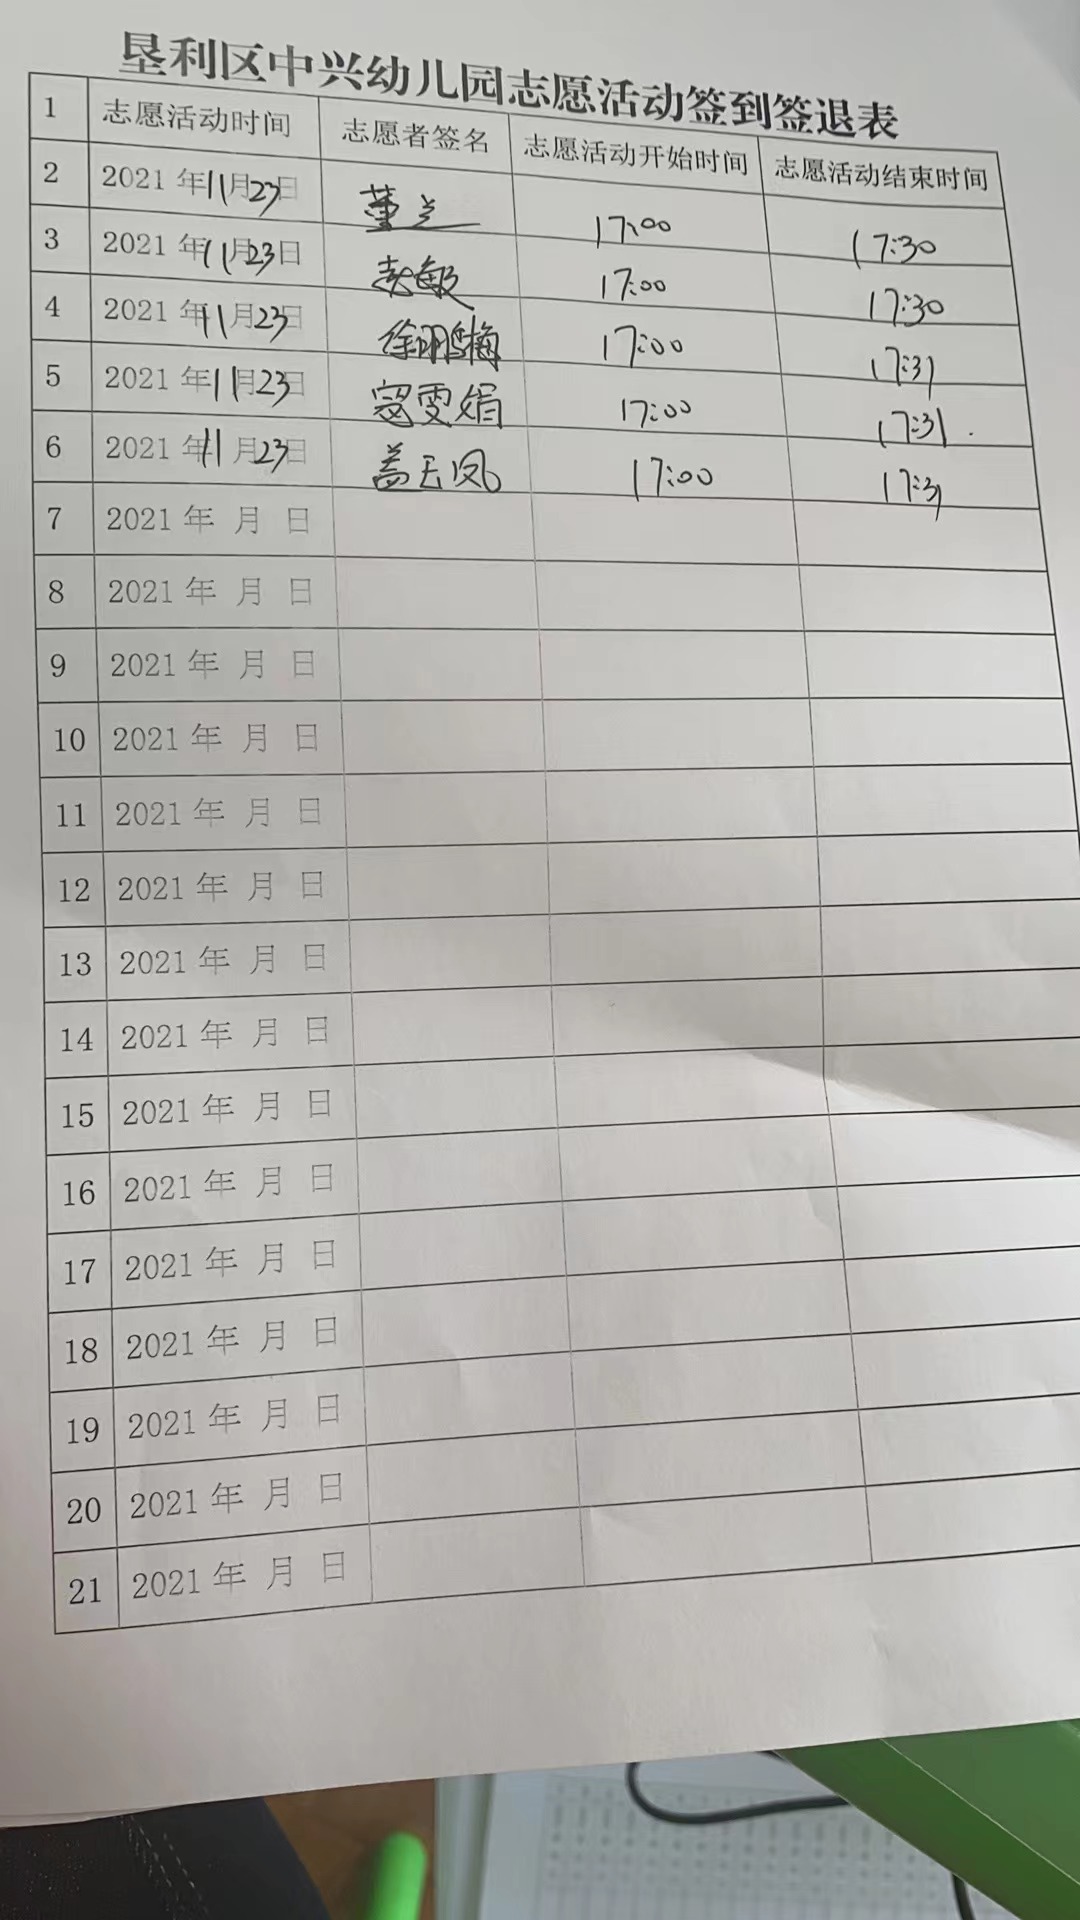 垦利区中兴幼儿园志愿活动签到签退表
1 志愿活动时间 志愿者签名 志愿活动开始时间 志愿活动结束时间
2 2021年11月23日 董兰 17:00 17:30
3 2021年11月23日 17:00 17:30
4 2021年11月23日 徐鹏梅 17:00 17:31
5 2021年11月23日 寇雯娟 17:00 17:31
6 2021年11月23日 盖玉凤 17:00 17:31
7 2021年 月 日
8 2021年 月 日
9 2021年 月 日
10 2021年 月 日
11 2021年 月 日
12 2021年 月 日
13 2021年 月 日
14 2021年 月 日
15 2021年 月 日
16 2021年 月 日
17 2021年 月 日
18 2021年 月 日
19 2021年 月 日
20 2021年 月 日
21 2021年 月 日